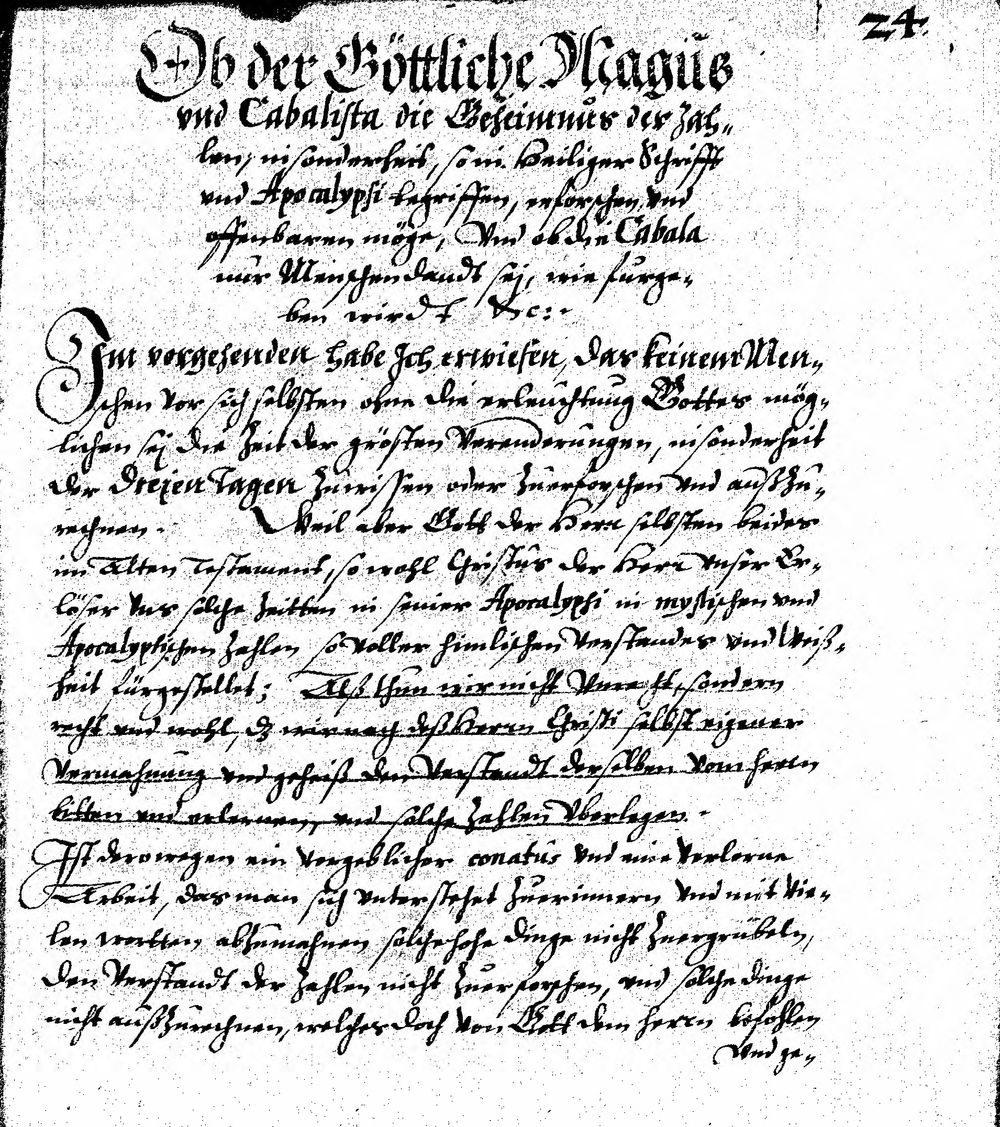 24.
Ob der Göttliche Magus
vnd Cabalista die Geheimnus der Zah-
len, insonderheit, so in Heiliger Schrifft
vnd Apocalypsi begriffen, erforschen, vnd
offenbaren möge, Vnd ob die Cabala
nur Menschen dandt sej, wie furge-
ben wirdt &c:.
Im vorgehenden habe Ich erwiesen, das keinem Men-
schen vor sich selbsten ohne die erleuchtung Gottes mög-
lichen sej die Zeit der grösten Verenderungen, insonderheit
der Dreien Tagen Zuwissen oder Zuerforschen vnd außZu-
rechnen. Weil aber Gott der Herr selbsten beides
im Alten Testament, so wohl Christus der Herr vnser Er-
löser vns solche Zeitten in seiner Apocalypsi in mystischen vnd
Apocalyptischen Zahlen so voller himlischen Verstandes vnd Weiß-
heit fürgestellet; Alß thun wir nicht Vnrecht, sondern
recht vnd wohl, dz wir nach deß Herrn Christi selbst eigener
Vermahnung vnd geheiß den Verstandt derselben vom herrn
bitten vnd erlernen, vnd solche Zahlen Vberlegen.
Ist derowegen ein Vergeblicher conatus vnd eine Verlorne
Arbeit, das man sich vnterstehet Zuerinnern vnd mit Vie-
len wortten abZumahnen solche hohe dinge nicht Zuergrübeln,
den Verstandt der Zahlen nicht Zuerforschen, vnd solche dinge
nicht außZurechnen, welches doch von Gott dem herrn befohlen
Vnd ge-